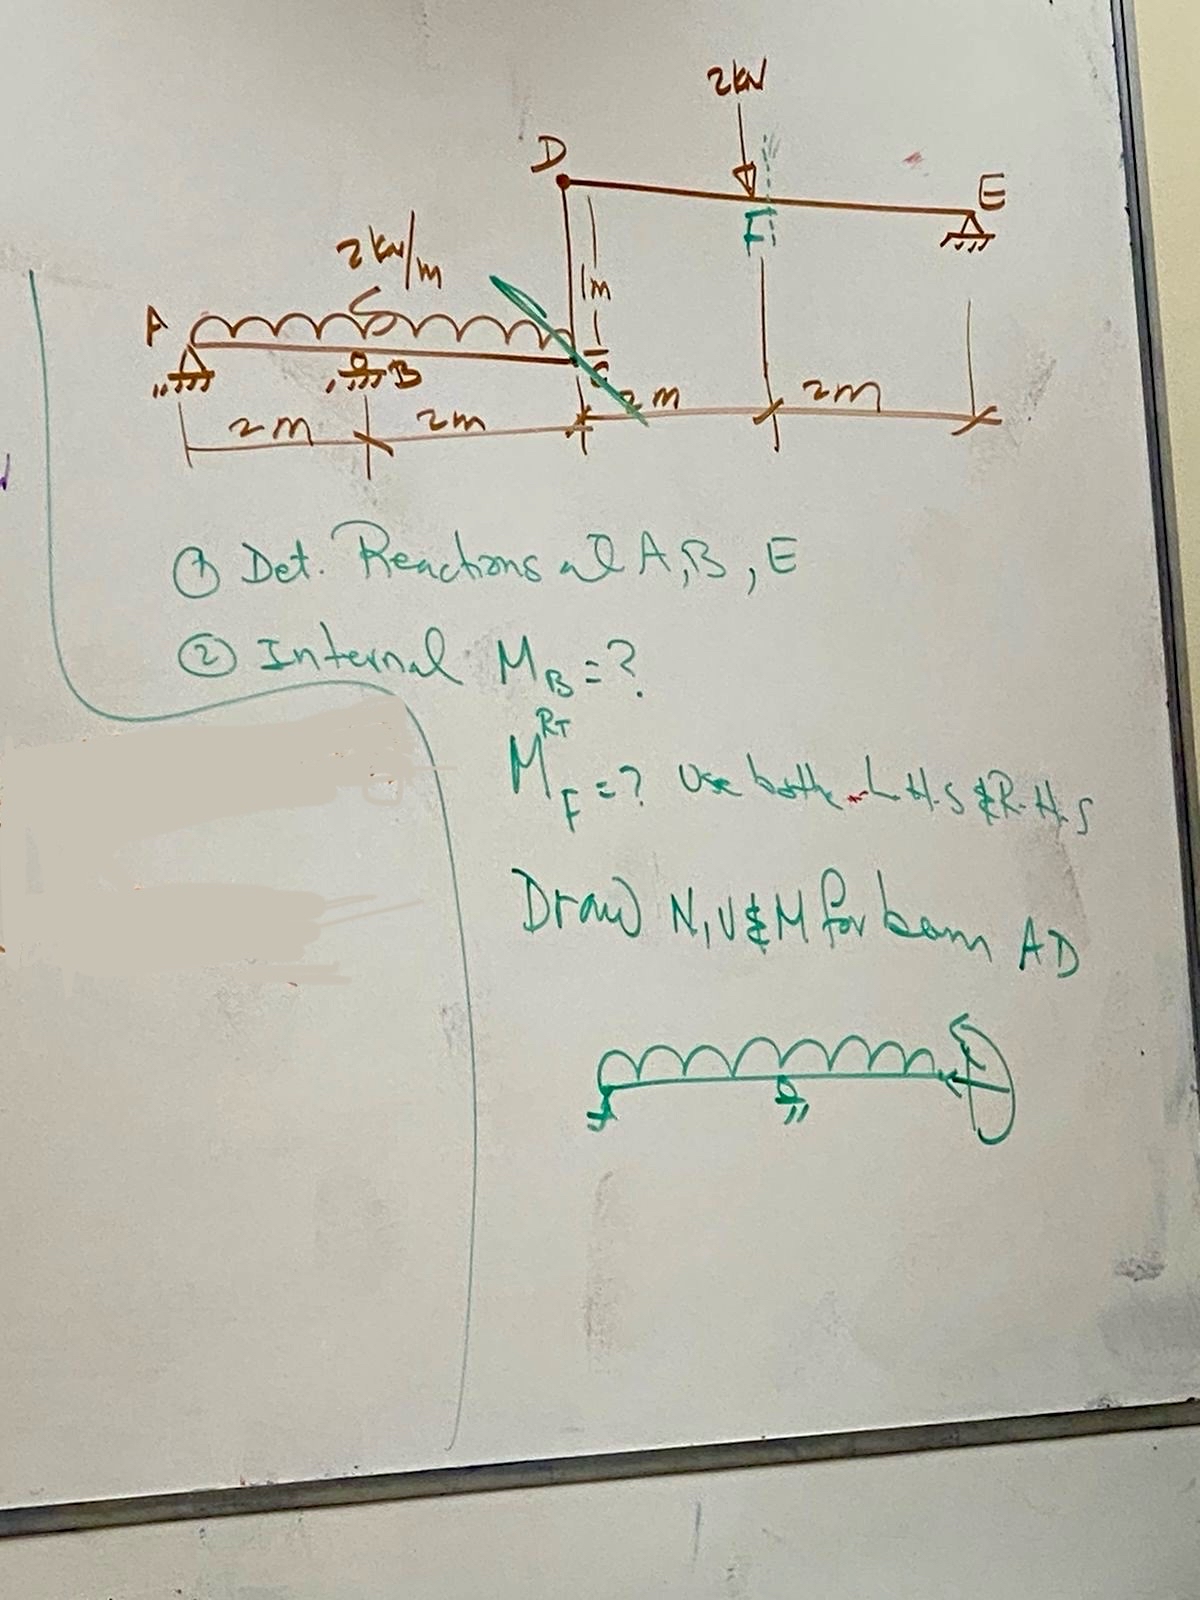 2kN
D
E
F
2kN/m
1m
A
B
C
2m
2m
2m
2m
① Det. Reactions at A, B, E
② Internal M_B = ?
M_F^RT = ? Use both L.H.S & R.H.S
Draw N, V & M for beam AD